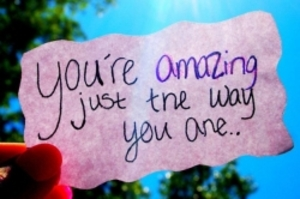 you're amazing
just the way
you are..